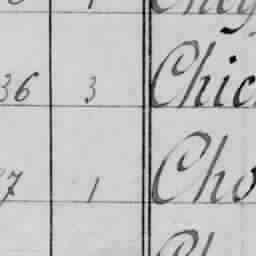 36 3 Chic
7 1 Cho